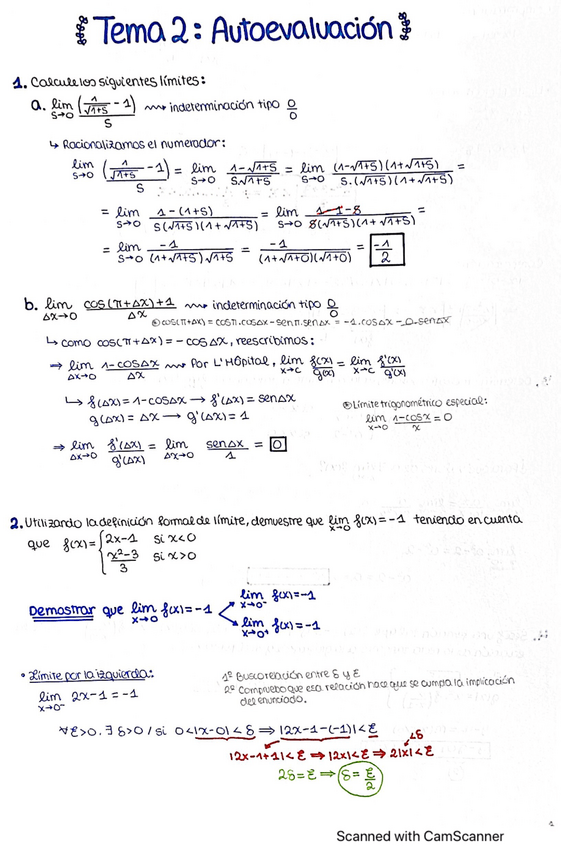 Tema 2: Autoevaluación
1. Calcule los siguientes límites:
a. lim s→0 (1/√(1+s) - 1)/s ⟿ indeterminación tipo 0/0
↳ Racionalizamos el numerador:
lim s→0 (1/√(1+s) - 1)/s = lim s→0 (1-√(1+s))/(s√(1+s)) = lim s→0 (1-√(1+s))(1+√(1+s))/(s·(√(1+s))(1+√(1+s))) =
= lim s→0 (1-(1+s))/(s(√(1+s))(1+√(1+s))) = lim s→0 (1-1-s)/(s(√(1+s))(1+√(1+s))) =
= lim s→0 -1/((1+√(1+s))√(1+s)) = -1/((1+√(1+0))(√(1+0))) = -1/2
b. lim Δx→0 (cos(π+Δx)+1)/Δx ⟿ indeterminación tipo 0/0
⊛cos(π+Δx)=cosπ.cosΔx-senπ.senΔx = -1.cosΔx-0.senΔx
↳ como cos(π+Δx)=-cosΔx, reescribimos:
⇒ lim Δx→0 (1-cosΔx)/Δx ⟿ Por L'Hôpital, lim x→c f(x)/g(x) = lim x→c f'(x)/g'(x)
↳ f(Δx)=1-cosΔx → f'(Δx)=senΔx
g(Δx)=Δx → g'(Δx)=1
⊛Límite trigonométrico especial:
lim x→0 (1-cosx)/x = 0
⇒ lim Δx→0 f'(Δx)/g'(Δx) = lim Δx→0 senΔx/1 = 0
2. Utilizando la definición formal de límite, demuestre que lim x→0 f(x)=-1 teniendo en cuenta
que f(x)= { 2x-1 si x<0
(x²-3)/3 si x>0
Demostrar que lim x→0 f(x)=-1
lim x→0⁻ f(x)=-1
lim x→0⁺ f(x)=-1
• Límite por la izquierda:
lim x→0⁻ 2x-1=-1
1º Busco relación entre δ y ε
2º Compruebo que esa relación hace que se cumpla la implicación
del enunciado.
∀ε>0.∃ δ>0 / si 0<|x-0|<δ ⇒ |2x-1-(-1)|<ε
|2x-1+1|<ε ⇒ |2x|<ε ⇒ 2|x|<ε
<δ
2δ=ε ⇒ δ=ε/2
1
Scanned with CamScanner